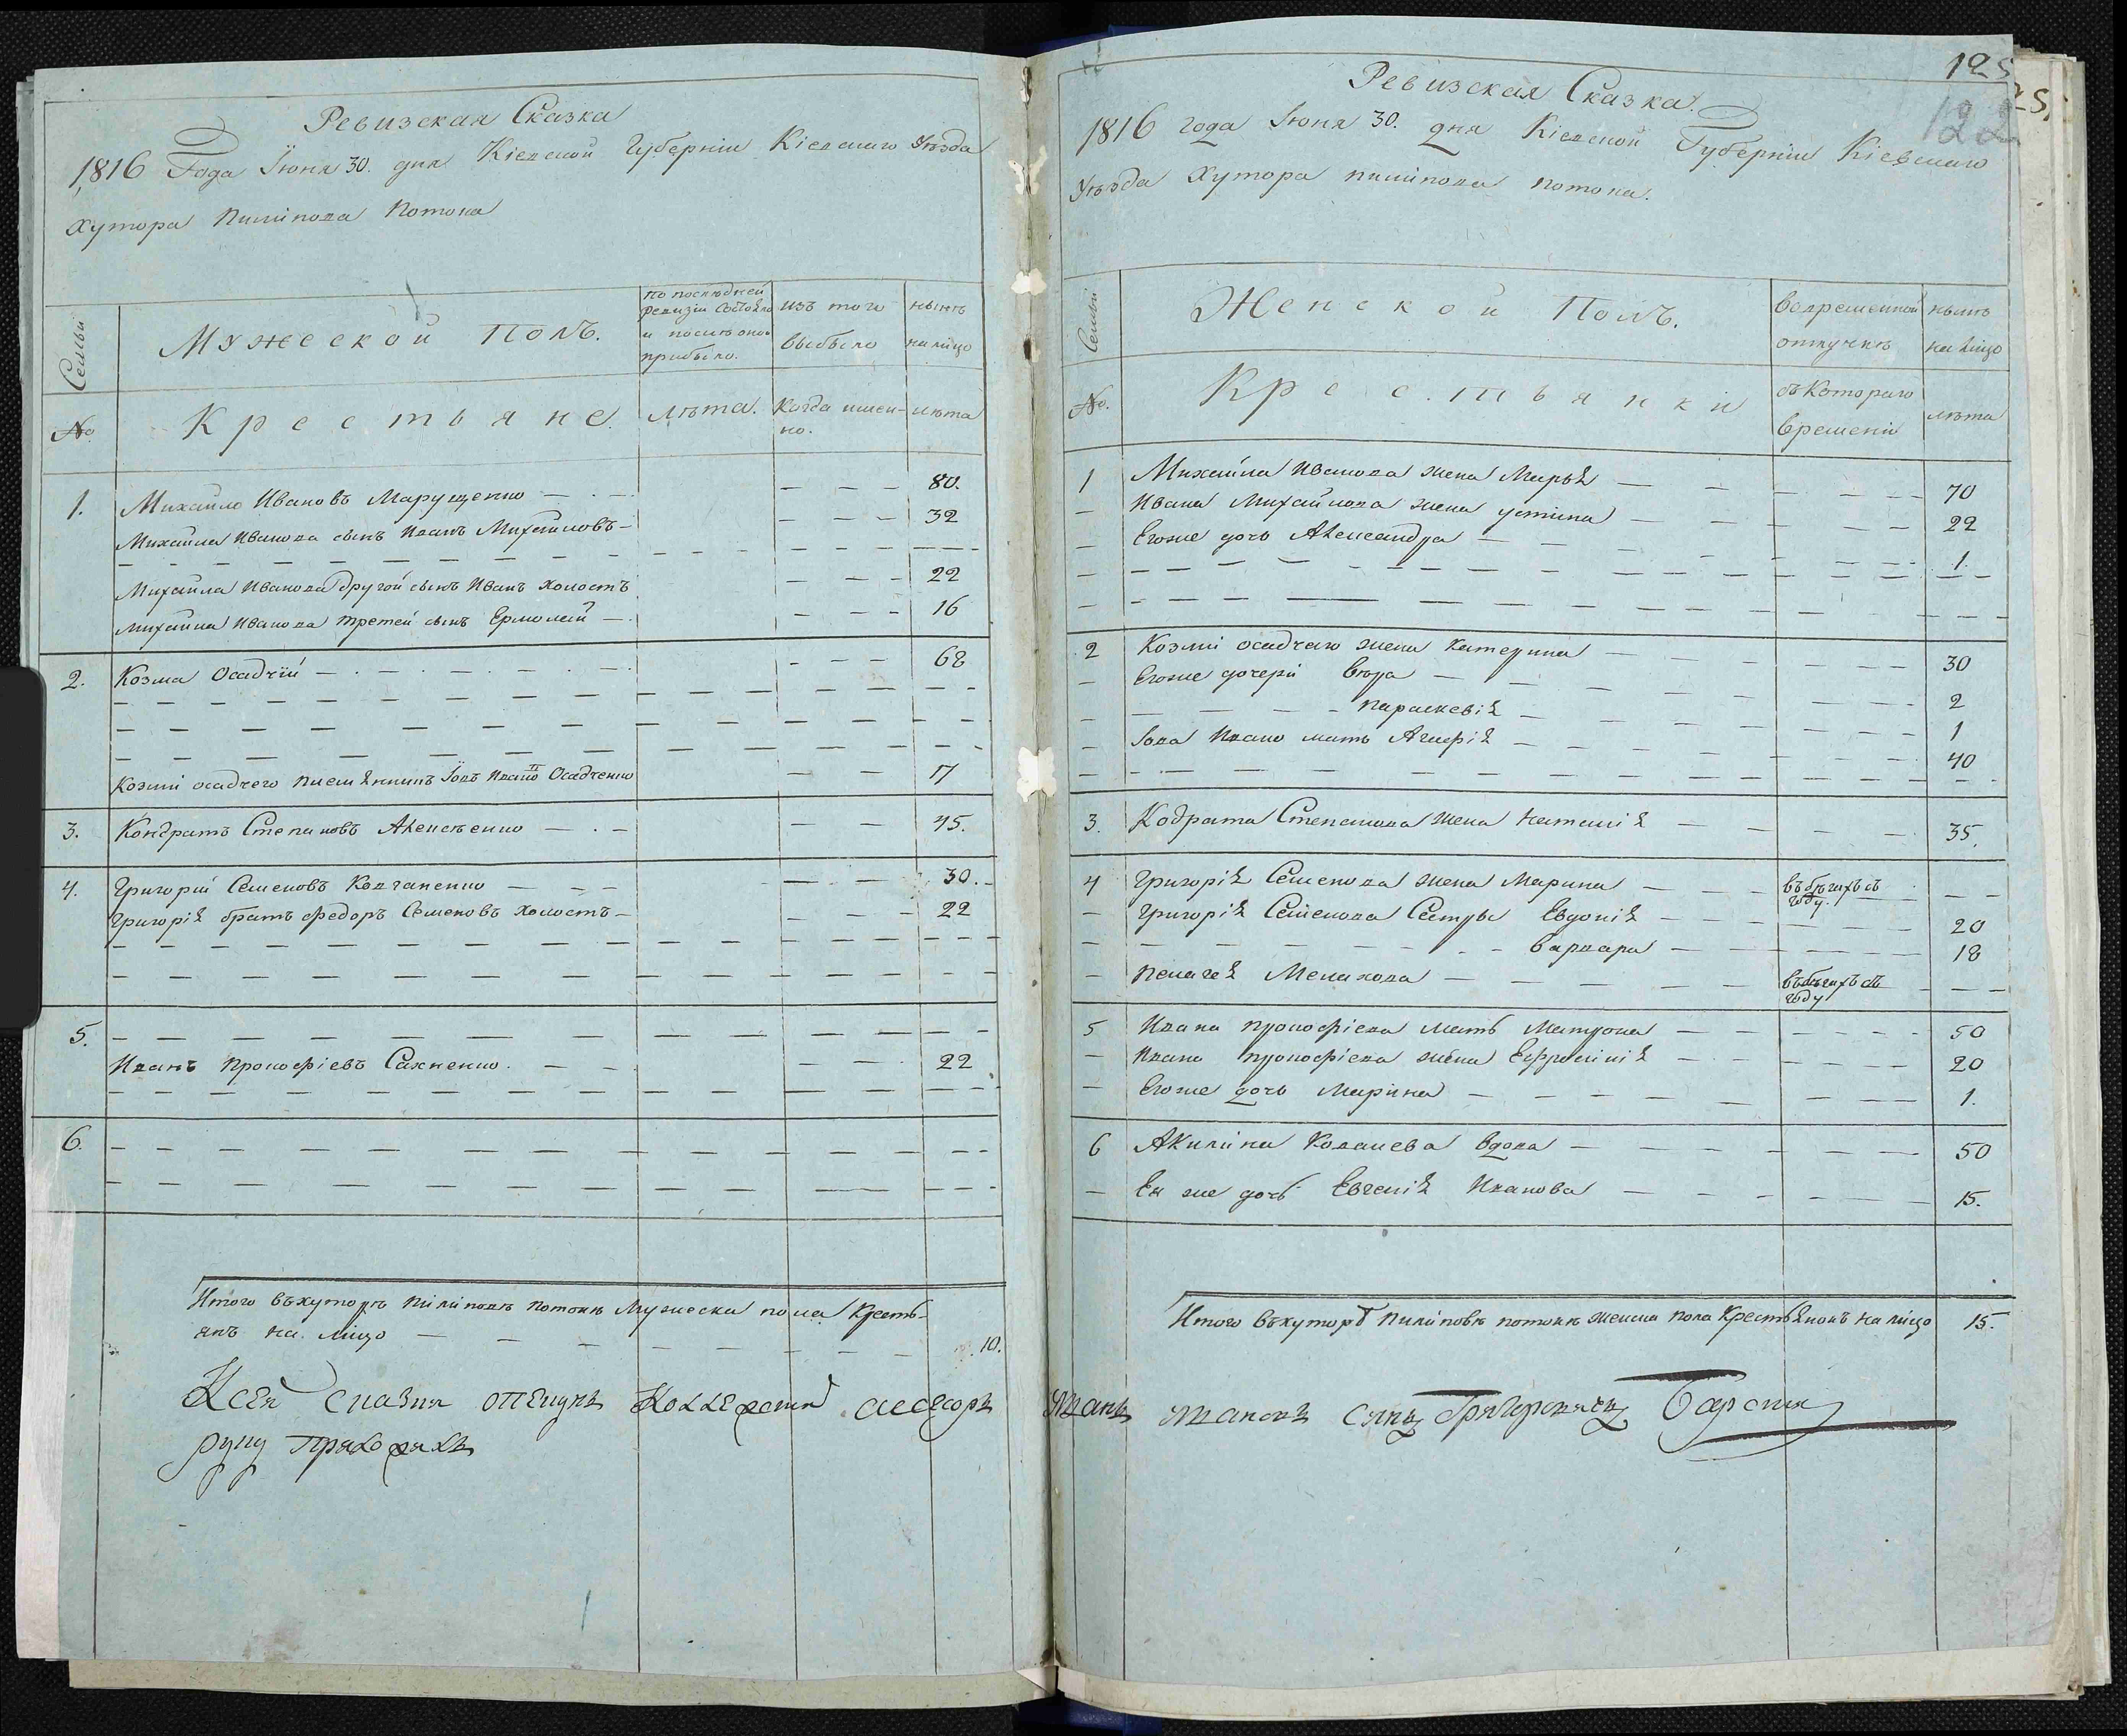 Ревизская Сказка
1816 Года Іюня 30. дня Кіевской Губерніи Кіевскаго Уѣзда
Хутора Пилипова Потока
Семьи
Мужеской Полъ.
по послѣдней ревизіи состояло и послѣ оной прибыло.
изъ того выбыло
нынѣ на лицо
№
Крестьяне
лѣта.
Когда имен-
но.
лѣта
1. Михайло Ивановъ Марущенко — . — — — — 80.
Михайла Иванова сынъ Иванъ Михайловъ — — — — 32
Михайла Иванова другой сынъ Иванъ холостъ — — — 22
Михайла Иванова третей сынъ Ермолай — — — — 16
2. Козма Осадчій — — — 68
Козми осадчего племѣнникъ Іовъ Осадченко — — 17
3. Кондратъ Степановъ Алексѣенко — . — — — 45.
4. Григорій Семеновъ Колчаненко — — — — — — 30.
Григорія братъ Федоръ Семеновъ холостъ — — — — 22
5.
Иванъ Прокофіевъ Сахненко. — — — — 22
6.
Итого въ хуторѣ Пилиповѣ потокѣ Мужеска пола Крестъ-
янъ на лицо — — — 10.
125
122
25
Ревизская Сказка.
1816 года Іюня 30. дня Кіевской Губерніи Кіевскаго
Уѣзда Хутора пилипова потока.
Семьи
Женской Полъ.
во временной отлучкѣ
нынѣ на лицо
№.
Крестьянки
съ котораго
времени
лѣта
1 Михайла Иванова жена Марья — — 70
— Ивана Михайлова жена устина — — 22
— Егоже дочь Александра — — 1.
2 Козми осадчаго жена Катерина — — 30
— Егоже дочери Вѣра — — 2
— — Параскевія — — 1
— Іова мать Агафія — — 40
3. Кодрата Степанова жена Наталія — — 35.
4 Григорія Семенова жена Марина — — въ бѣгахъ съ году. — —
— Григорія Семенова Сестры Евдокія — — 20
— — Варвара — — 18
— пелагея — — въ бѣгахъ съ году — —
5 Ивана прокофіева мать Матрона — — 50
— Ивана прокофіева жена Ефросинія — — 20
— Егоже дочь Марина — — 1.
6 Акилина Ковалева вдова — — 50
— Ея же дочь Евгенія Иванова — — 15.
Итого въ хуторѣ пилиповѣ потокѣ женска пола Крестьянокъ на лицо 15.
К сей сказки отъ
коллежскій асесоръ Иванъ Ивановъ сынъ Григоровичъ Барскій
руку приложилъ